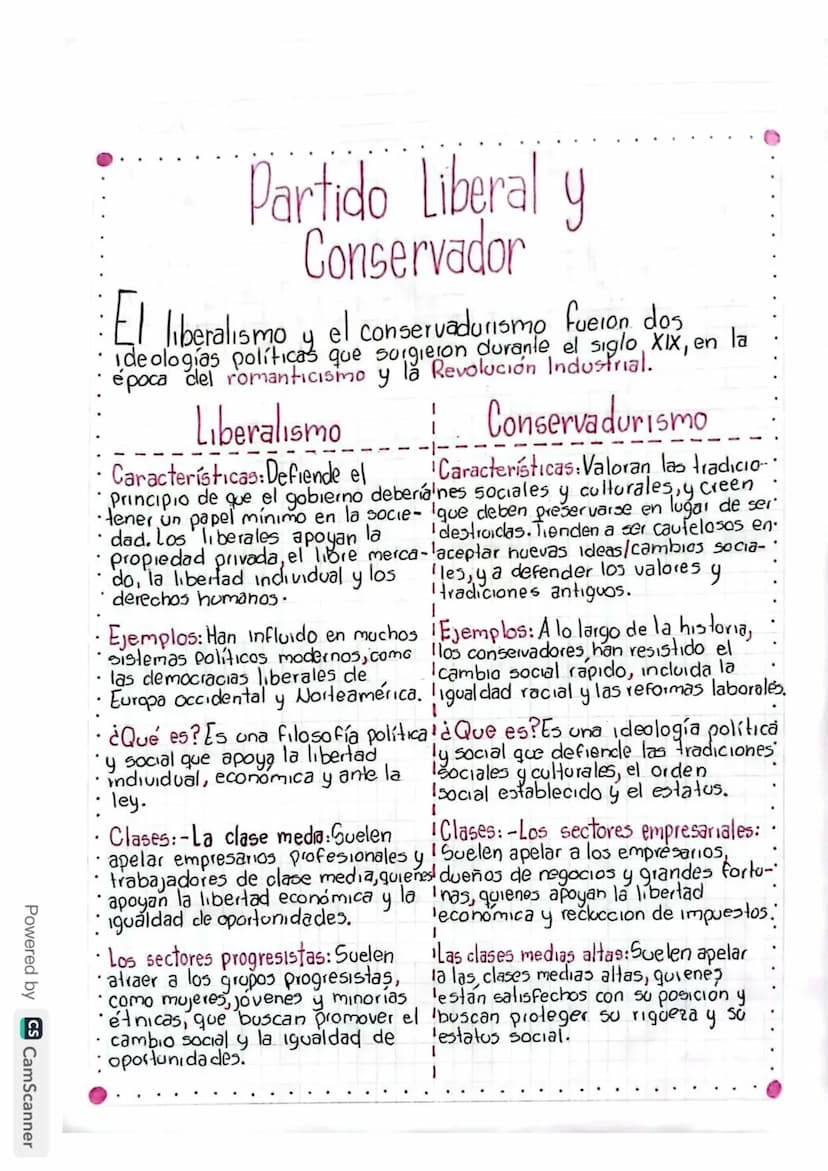 Partido Liberal y
Conservador
El liberalismo y el conservadurismo fueron dos
ideologías políticas que surgieron durante el siglo XIX, en la
época del romanticismo y la Revolución Industrial.
Liberalismo
Características: Defiende el
principio de que el gobierno debería
tener un papel mínimo en la socie-
dad. Los liberales apoyan la
propiedad privada, el libre merca-
do, la libertad individual y los
derechos humanos.
Ejemplos: Han influido en muchos
sistemas políticos modernos, como
las democracias liberales de
Europa occidental y Norteamérica.
¿Qué es? Es una filosofía política
y social que apoya la libertad
individual, económica y ante la
ley.
Clases: - La clase media: Suelen
apelar empresarios profesionales y
trabajadores de clase media, quienes
apoyan la libertad económica y la
igualdad de oportunidades.
Los sectores progresistas: Suelen
atraer a los grupos progresistas,
como mujeres, jóvenes y minorías
étnicas, que buscan promover el
cambio social y la igualdad de
oportunidades.
Conservadurismo
Características: Valoran las tradicio-
nes sociales y culturales, y creen
que deben preservarse en lugar de ser
destruidas. Tienden a ser cautelosos en
aceptar nuevas ideas/cambios socia-
les, y a defender los valores y
tradiciones antiguos.
Ejemplos: A lo largo de la historia,
los conservadores, han resistido el
cambio social rápido, incluida la
igualdad racial y las reformas laborales.
¿Que es? Es una ideología política
y social que defiende las tradiciones
sociales y culturales, el orden
social establecido y el estatus.
Clases: - Los sectores empresariales:
Suelen apelar a los empresarios,
dueños de negocios y grandes fortu-
nas, quienes apoyan la libertad
económica y reducción de impuestos.
Las clases medias altas: Suelen apelar
a las clases medias altas, quienes
están satisfechos con su posición y
buscan proteger su riqueza y su
estatus social.
Powered by CS CamScanner